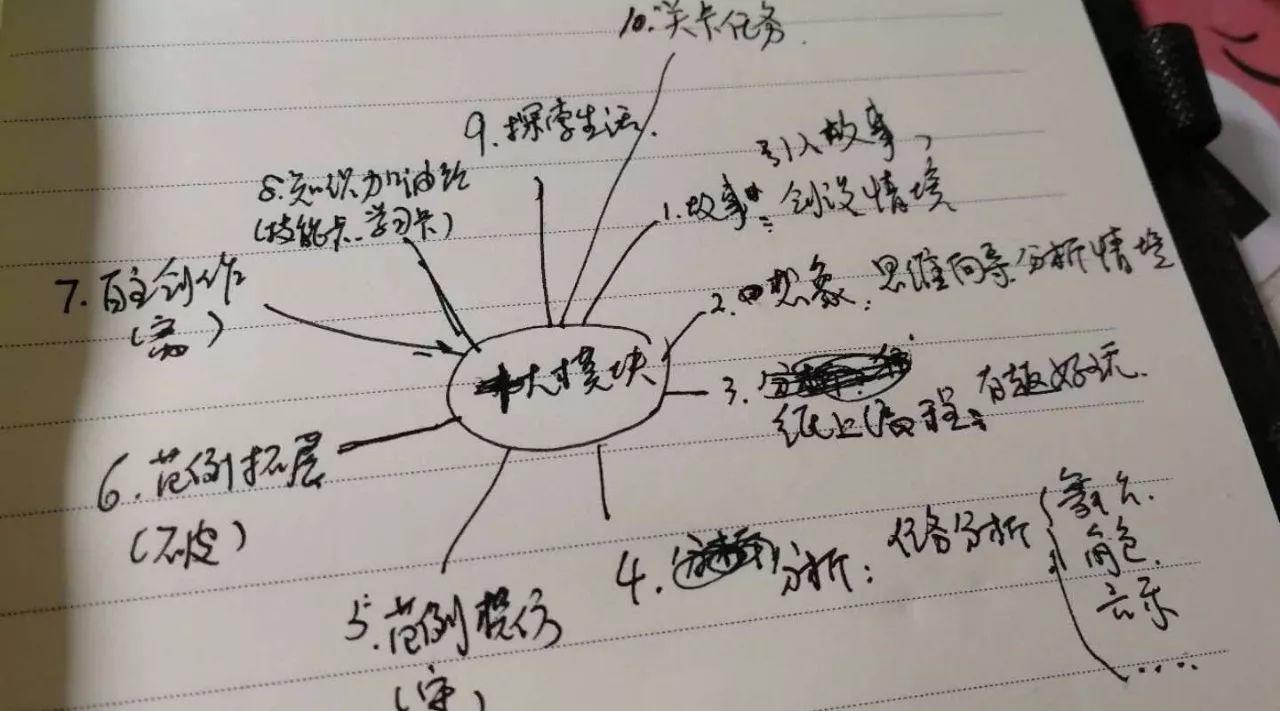 10.关卡任务.
9.探索生活.
8.知识加油站
(技能卡、学习卡)
7.自主创作
( )
6.范例拓展
( )
5.范例模仿
(守)
4. 分析: 任务分析
舞台.
角色.
音乐
....
3.
纸上编程: 有趣好玩.
2. 想象: 思维向导 分析情境
1.故事: 引入故事,
创设情境
十大模块